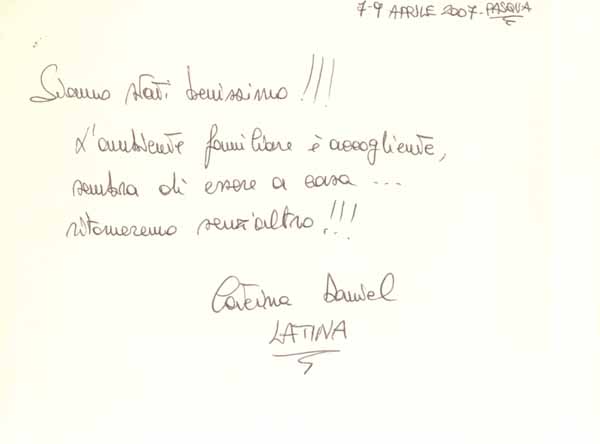 7-9 APRILE 2007. PASQUA
Siamo stati benissimo!!!
L'ambiente familiare è accogliente,
sembra di essere a casa ...
ritorneremo senz'altro!!!
Caterina Daniel
LATINA